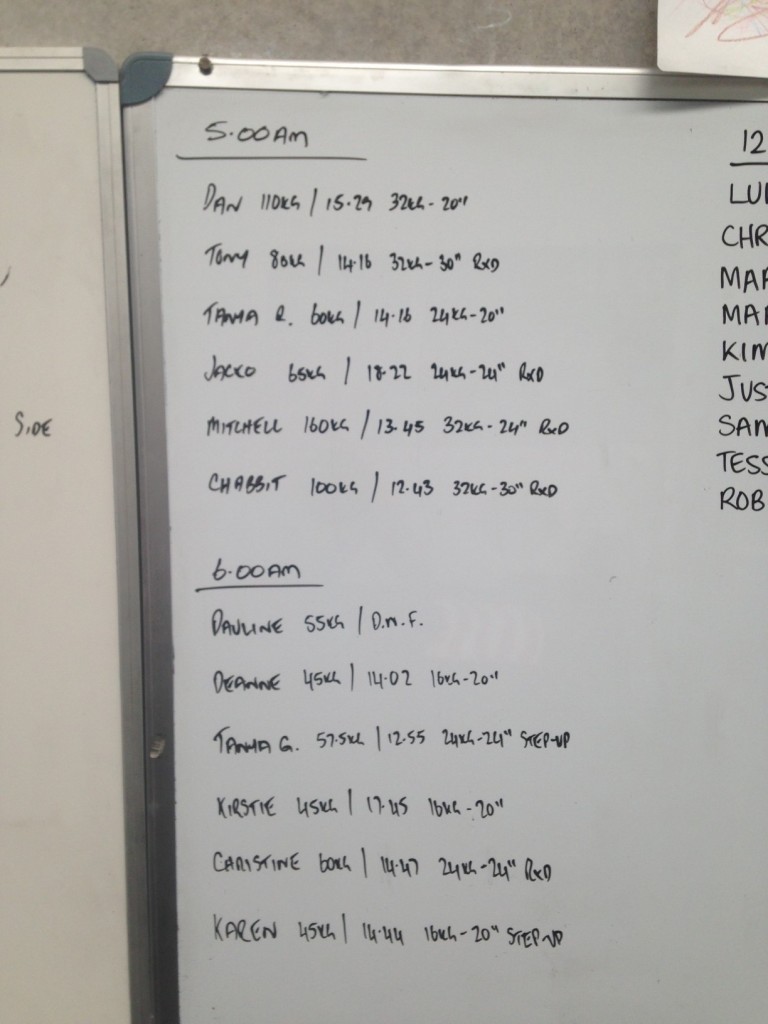 5.00AM
DAN 110KG / 15.29 32KG - 20"
TONY 80KG / 14.16 32KG - 30" RXD
TANIA R. 60KG / 14.16 24KG - 20"
JACKO 65KG / 18.22 24KG - 24" RXD
MITCHELL 160KG / 13.45 32KG - 24" RXD
CHABBIT 100KG / 12.43 32KG - 30" RXD
6.00AM
PAULINE 55KG / D.N.F.
DEANNE 45KG / 14.02 16KG - 20"
TANIA G. 57.5KG / 12.55 24KG - 24" STEP-UP
KIRSTIE 45KG / 17.45 16KG - 20"
CHRISTINE 60KG / 14.47 24KG - 24" RXD
KAREN 45KG / 14.44 16KG - 20" STEP-UP
SIDE
12
LU
CHR
MAR
MAR
KIM
JUS
SAM
TESS
ROB